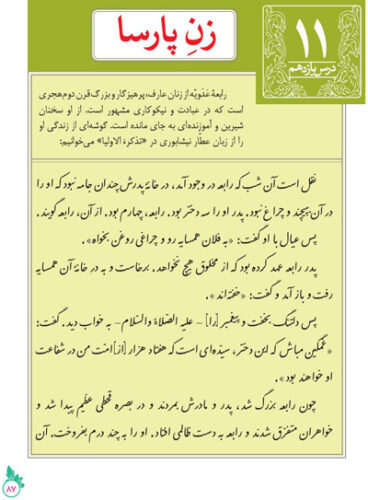 ۱۱
درس یازدهم
زنِ پارسا
رابعهٔ عَدَویّه از زنان عارف، پرهیزگار و بزرگ قرن دوم هجری
است که در عبادت و نیکوکاری مشهور است. از او سخنان
شیرین و آموزنده‌ای به جای مانده است. گوشه‌ای از زندگی او
را از زبان عطّار نیشابوری در «تذکرة الاولیا» می‌خوانیم:
نقل است آن شب که رابعه در وجود آمد، در خانهٔ پدرش چندان جامه نبود که او را
در آن پیچند و چراغ نبود. پدر او را سه دختر بود. رابعه، چهارم بود. از آن، رابعه گویند.
پس عیال با او گفت: «به فلان همسایه رو و چراغی روغن بخواه».
پدر رابعه عهد کرده بود که از مخلوق هیچ نخواهد. برخاست و به در خانهٔ آن همسایه
رفت و باز آمد و گفت: «خفته‌اند».
پس دلتنگ بخفت و پیغمبر [را] – علیه الصلاة والسلام– به خواب دید. گفت:
«غمگین مباش که این دختر، سیّده‌ای است که هفتاد هزار [از] امّت من در شفاعت
او خواهند بود».
چون رابعه بزرگ شد، پدر و مادرش بمردند و در بصره قحطی عظیم پیدا شد و
خواهران متفرّق شدند و رابعه به دست ظالمی افتاد. او را به چند درم بفروخت. آن
۸۷